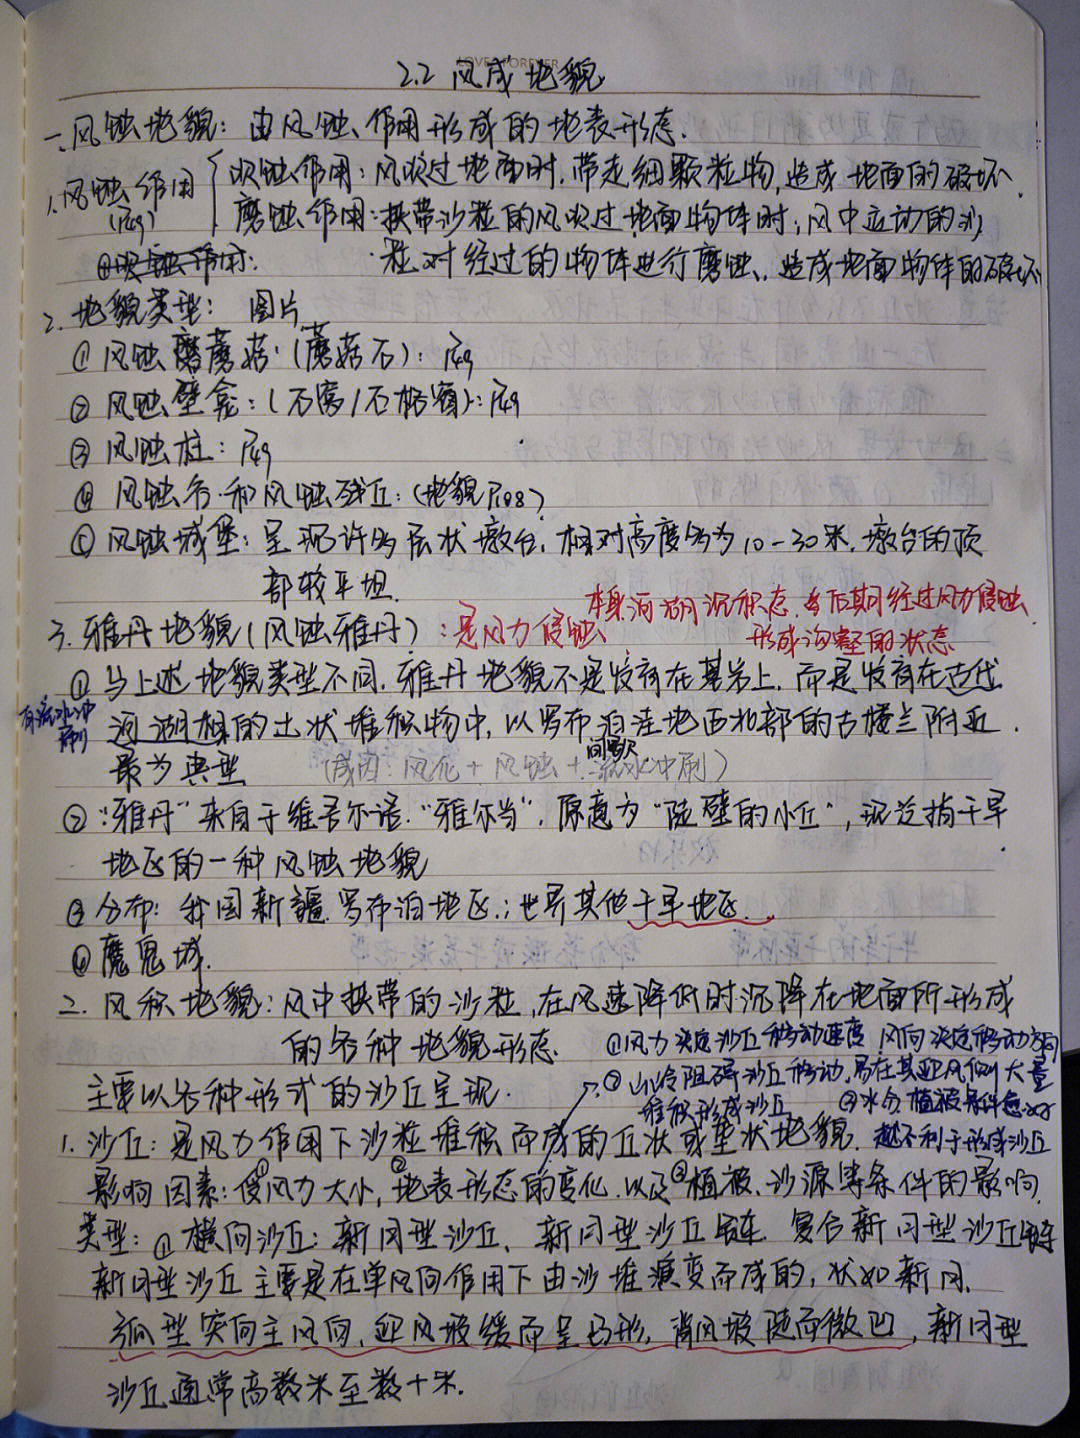 LOVE FOREVER
2.2 风成地貌
一.风蚀地貌：由风蚀作用形成的地表形态.
1.风蚀作用 吹蚀作用：风吹过地面时,带走细颗粒物,造成地面的破坏.
(P49) 磨蚀作用：挟带沙粒的风吹过地面物体时,风中运动的沙
粒对经过的物体进行磨蚀,造成地面物体的破坏
2.地貌类型：图片
① 风蚀蘑菇：(蘑菇石)：P49
② 风蚀壁龛：(石窝/石格窗)：P49
③ 风蚀柱：P49
④ 风蚀谷和风蚀残丘：(地貌P98)
⑤ 风蚀城堡：呈现许多层状墩台,相对高度多为10-30米.墩台的顶
部较平坦.
本身河湖沉积态,当后期经过风力侵蚀
3.雅丹地貌(风蚀雅丹)：是风力侵蚀 形成沟壑的状态
① 与上述地貌类型不同.雅丹地貌不是发育在基岩上,而是发育在古代
有流水冲刷
河湖相的土状堆积物中,以罗布泊洼地西北部的古楼兰附近
间歇
最为典型 (成因：风化+风蚀+流水冲刷)
②“雅丹”来自于维吾尔语.“雅尔当”,原意为“陡壁的小丘”,现泛指干旱
地区的一种风蚀地貌
③ 分布：我国新疆.罗布泊地区；世界其他干旱地区.
④ 魔鬼城.
二.风积地貌：风中挟带的沙粒,在风速降低时沉降在地面所形成
的各种地貌形态
①风力决定沙丘移动速度 风向决定移动方向
主要以各种形式的沙丘呈现.
②山岭阻碍沙丘移动,易在其迎风侧大量
堆积形成沙丘 ③水分植被条件越好
1.沙丘：是风力作用下沙粒堆积而成的丘状或垄状地貌. 越不利于形成沙丘
影响因素：受①风力大小,②地表形态的变化.以及③植被、沙源等条件的影响.
类型：①横向沙丘：新月型沙丘、新月型沙丘链.复合新月型沙丘链
新月型沙丘主要是在单风向作用下由沙堆演变而成的,状如新月.
弧型突向主风向,迎风坡缓而呈凸形,背风坡陡而微凹,新月型
沙丘通常高数米至数十米.